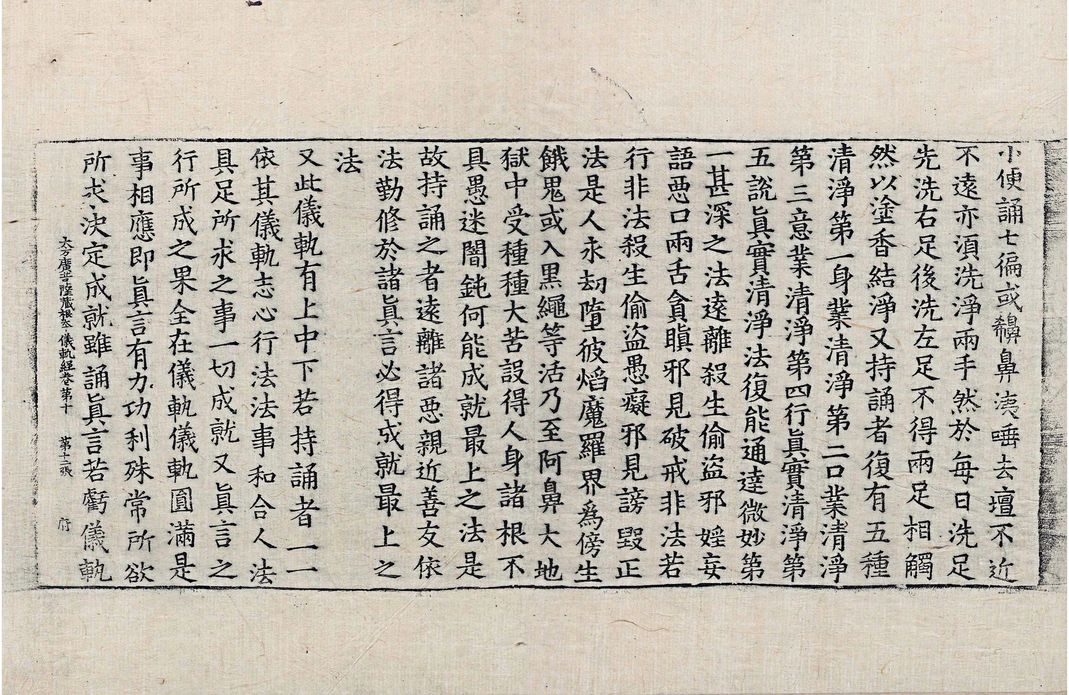 小便誦七徧或䶎鼻洟唾去壇不近
不遠亦湏洗淨兩手然於每日洗足
先洗右足後洗左足不得兩足相觸
然以塗香結淨又持誦者復有五種
清淨第一身業清淨第二口業清淨
第三意業清淨第四行眞實清淨第
五說眞實清淨法復能通達微妙第
一甚深之法遠離殺生偷盜邪婬妄
語惡口兩舌貪瞋邪見破戒非法若
行非法殺生偷盜愚癡邪見謗毀正
法是人永劫墮彼焰魔羅界爲傍生
餓鬼或入黑繩等活乃至阿鼻大地
獄中受種種大苦設得人身諸根不
具愚迷闇鈍何能成就最上之法是
故持誦之者遠離諸惡親近善友依
法勤修於諸眞言必得成就最上之
法
又此儀軌有上中下若持誦者一一
依其儀軌志心行法法事和合人法
具足所求之事一切成就又眞言之
行所成之果全在儀軌儀軌圓滿是
事相應即眞言有力功利殊常所欲
大方廣菩薩藏儀軌經卷第十 第十二張 府
所求決定成就雖誦眞言若虧儀軌